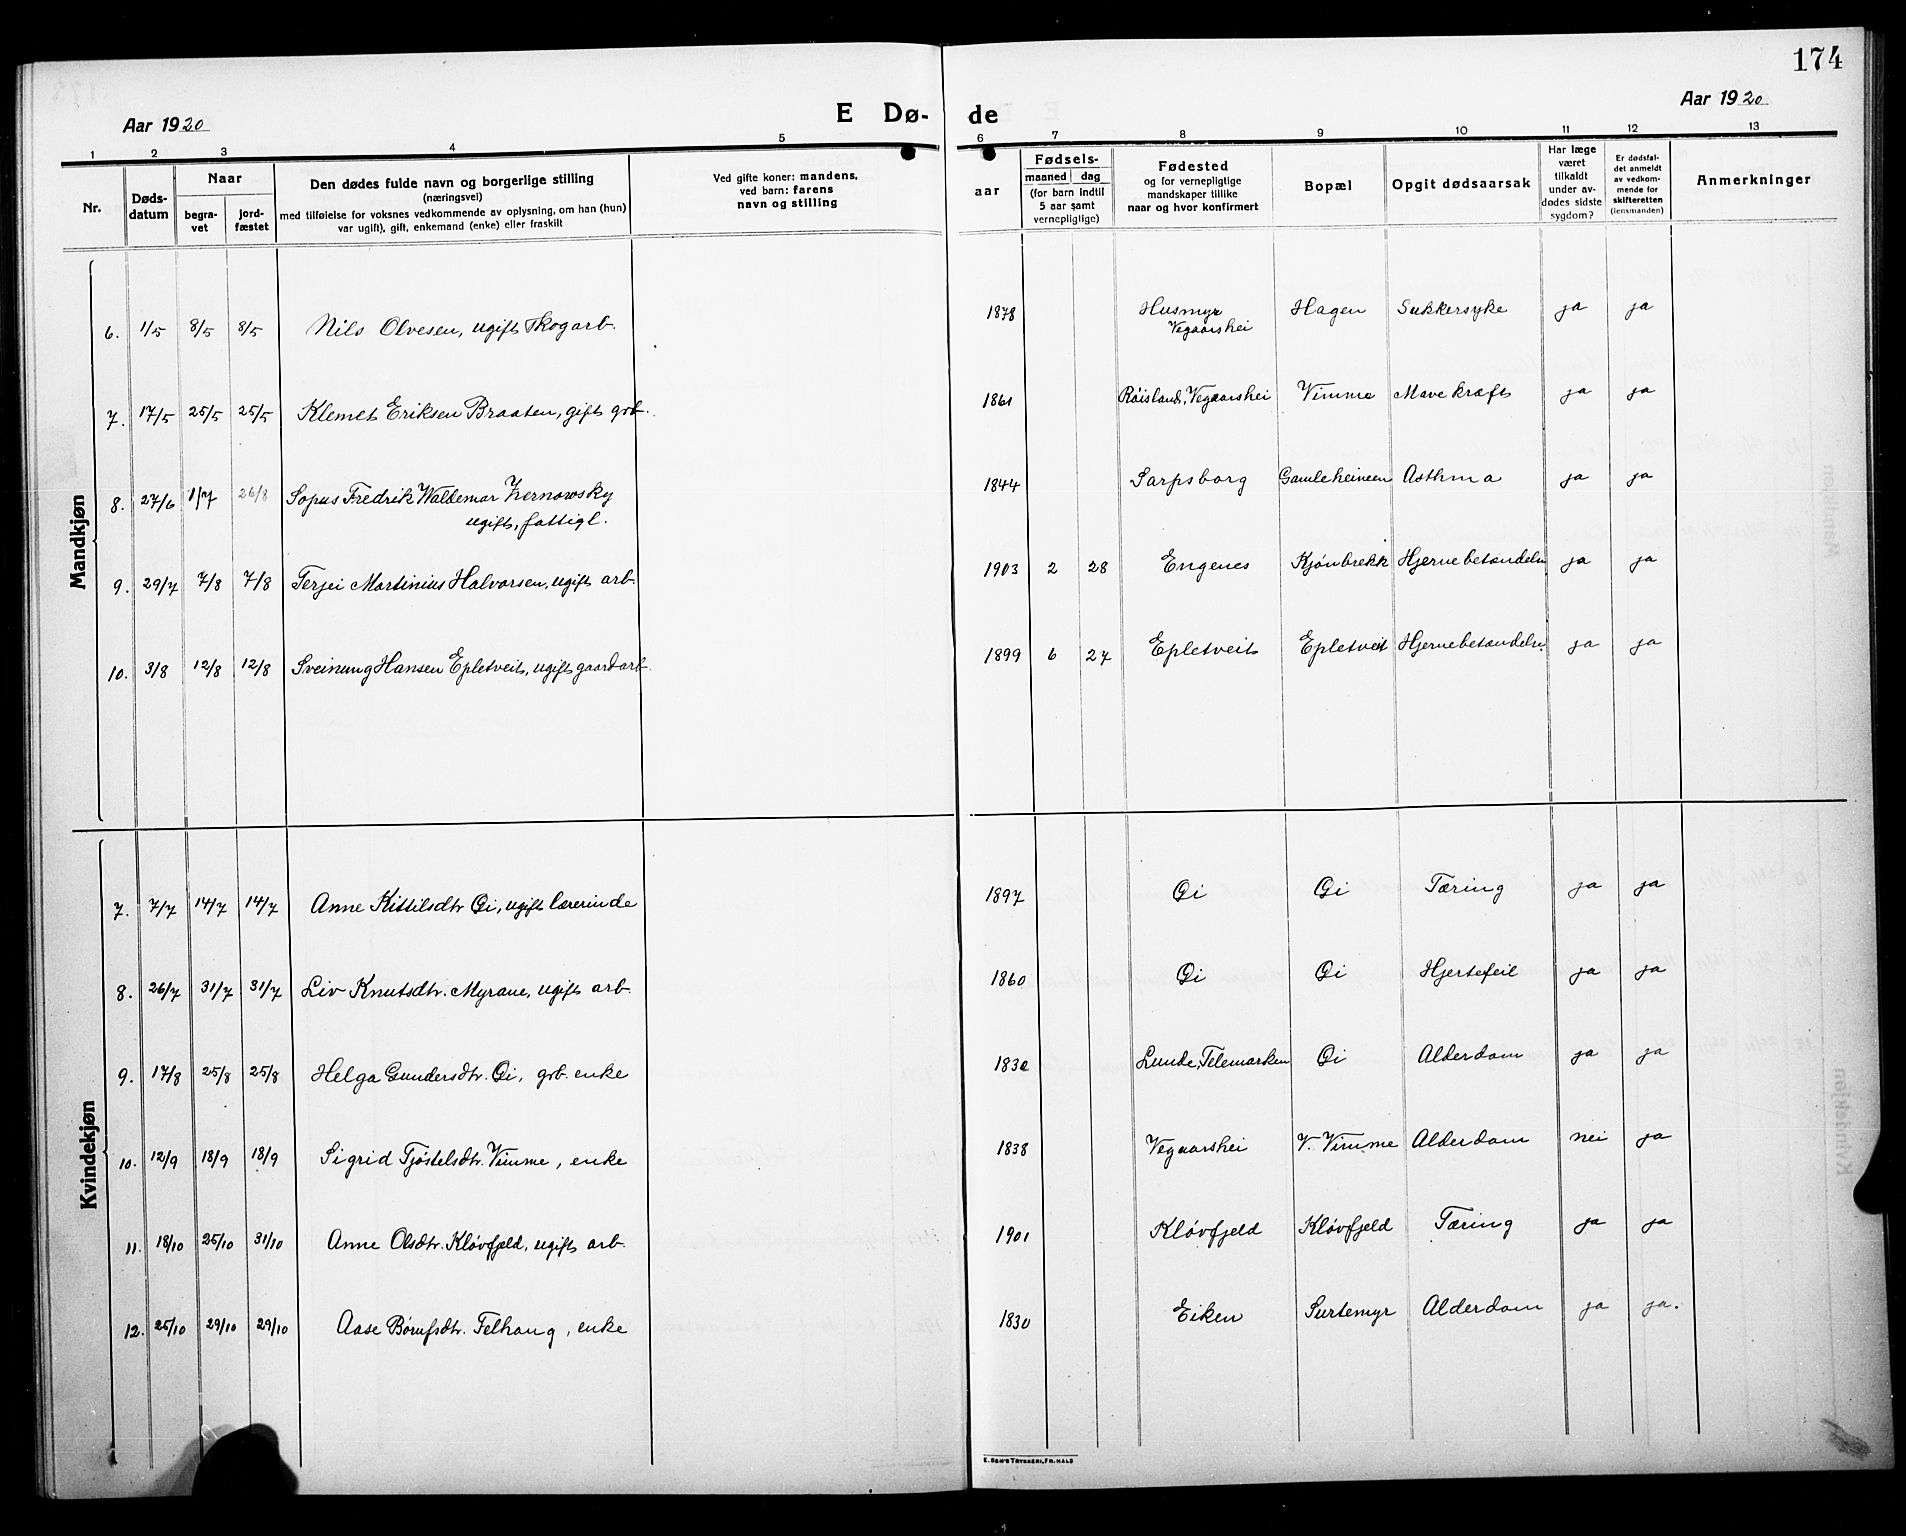 174
Aar 1920
E Dø-
de
Aar 1920
1 2 3 4 5 6 7 8 9 10 11 12 13
Nr.
Døds-
datum
Naar
begra-
vet
jord-
fæstet
Den dødes fulde navn og borgerlige stilling
(næringsvei)
med tilføielse for voksnes vedkommende av oplysning, om han (hun)
var ugift), gift, enkemand (enke) eller fraskilt
Ved gifte koner: mandens,
ved barn: farens
navn og stilling
aar
Fødsels-
maaned dag
(for barn indtil
5 aar samt
vernepligtige)
Fødested
og for vernepligtige
mandskaper tillike
naar og hvor konfirmert
Bopæl
Opgit dødsaarsak
Har læge
været
tilkaldt
under av-
dødes sidste
sygdom?
Er dødsfal-
det anmeldt
av vedkom-
mende for
skifteretten
(lensmanden)
Anmerkninger
Mandkjøn
6. 1/5 8/5 8/5 Nils Olvesen, ugift Skogarb. 1878 Husmyr Hagen Sukkersyke ja ja
Vegaarshei
7. 17/5 25/5 25/5 Klemet Eriksen Braaten, gift grb. 1861 Røisland, Vegaarshei Vimme Mavekræft ja ja
8. 27/6 1/7 26/8 Sopus Fredrik Waldemar Zernowsky 1844 Sarpsborg Gamleheimen Asthma ja ja
ugift, fattigl.
9. 29/7 7/8 7/8 Terjei Martinius Halvorsen, ugift arb. 1903 2 28 Engenes Kjønbrekk Hjernebetændelse ja ja
10. 3/8 12/8 12/8 Sveinung Hansen Epletveit, ugift gaardarb. 1899 6 27 Epletveit Epletveit Hjernebetændelse ja ja
Kvindekjøn
7. 7/7 14/7 14/7 Anne Kittilsdtr. Øi, ugift lærerinde 1897 Øi Øi Tæring ja ja
8. 26/7 31/7 31/7 Liv Knutsdtr. Myrane, ugift arb. 1860 Øi Øi Hjertefeil ja ja
9. 17/8 25/8 25/8 Helga Gundersdtr. Øi, grb. enke Lunde, Telemarken Øi Alderdom ja ja
10. 12/9 18/9 18/9 Sigrid Tjøstelsdtr. Vimme, enke 1838 Vegaarshei V. Vimme Alderdom nei ja
11. 18/10 25/10 31/10 Anne Olsdtr. Kløvfjeld, ugift arb. 1901 Kløvfjeld Kløvfjeld Tæring ja ja
12. 25/10 29/10 29/10 Aase Børufsdtr. Felhaug, enke 1830 Eiken Surtemyr Alderdom ja ja.
E. SEM'S TRYKKERI, FR. HALD